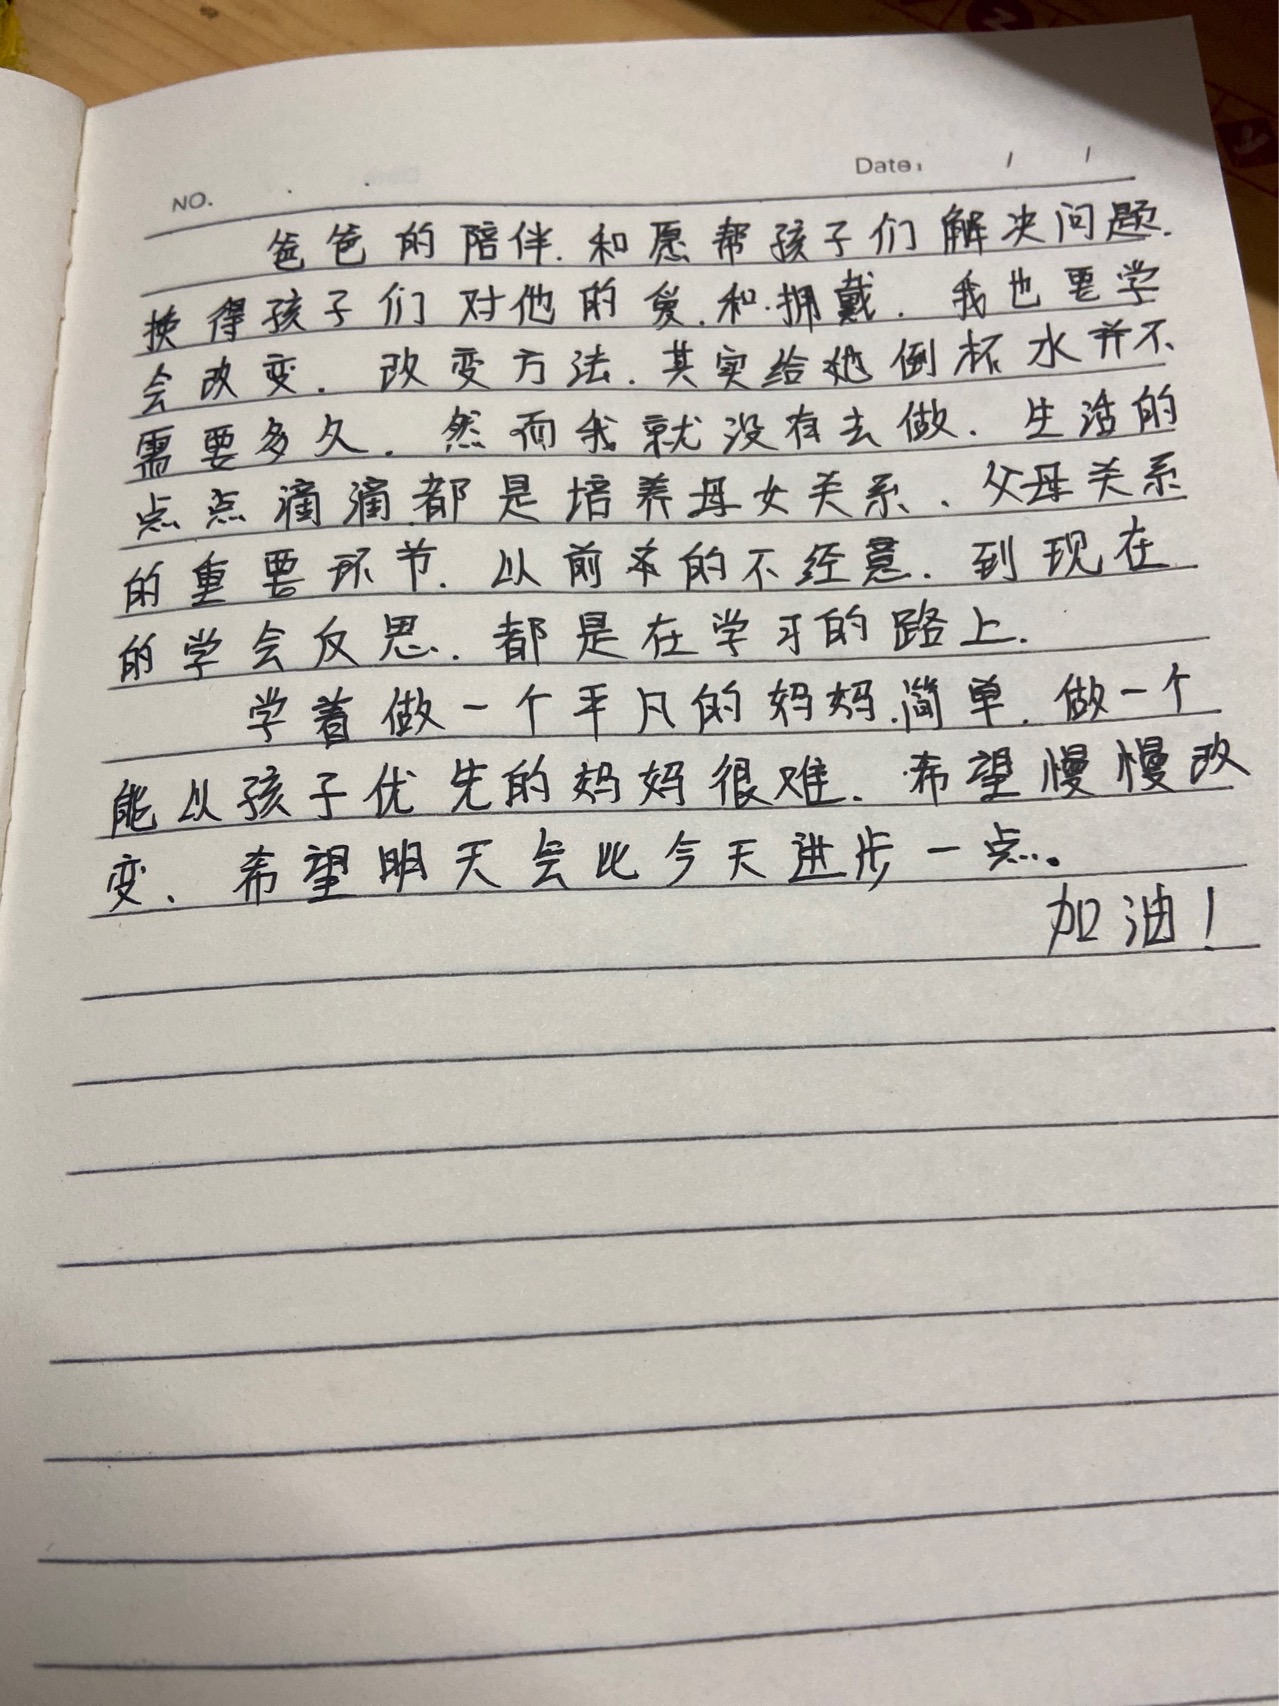 NO.
Date: / /
爸爸的陪伴.和愿帮孩子们解决问题.
换得孩子们对他的爱.和.拥戴.我也要学
会改变.改变方法.其实给她倒杯水并不
需要多久.然而我就没有去做.生活的
点点滴滴都是培养母女关系、父母关系
的重要环节.以前的不经意.到现在
的学会反思.都是在学习的路上.
学着做一个平凡的妈妈.简单.做一个
能以孩子优先的妈妈很难.希望慢慢改
变、希望明天会比今天进步一点。
加油!